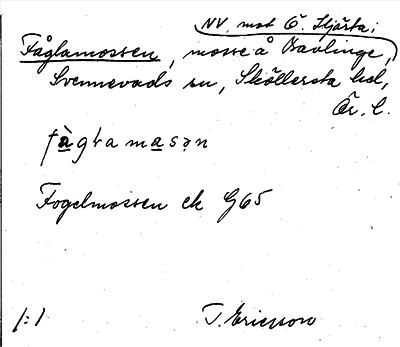 NV. mot Ö. Stjärta;
Fåglamossen, mosse å Bavlinge,
Svennevads sn, Sköllersta hd,
Ör. l.
fàglamasən
Fogelmossen ek G65
1:1 T. Ericsson